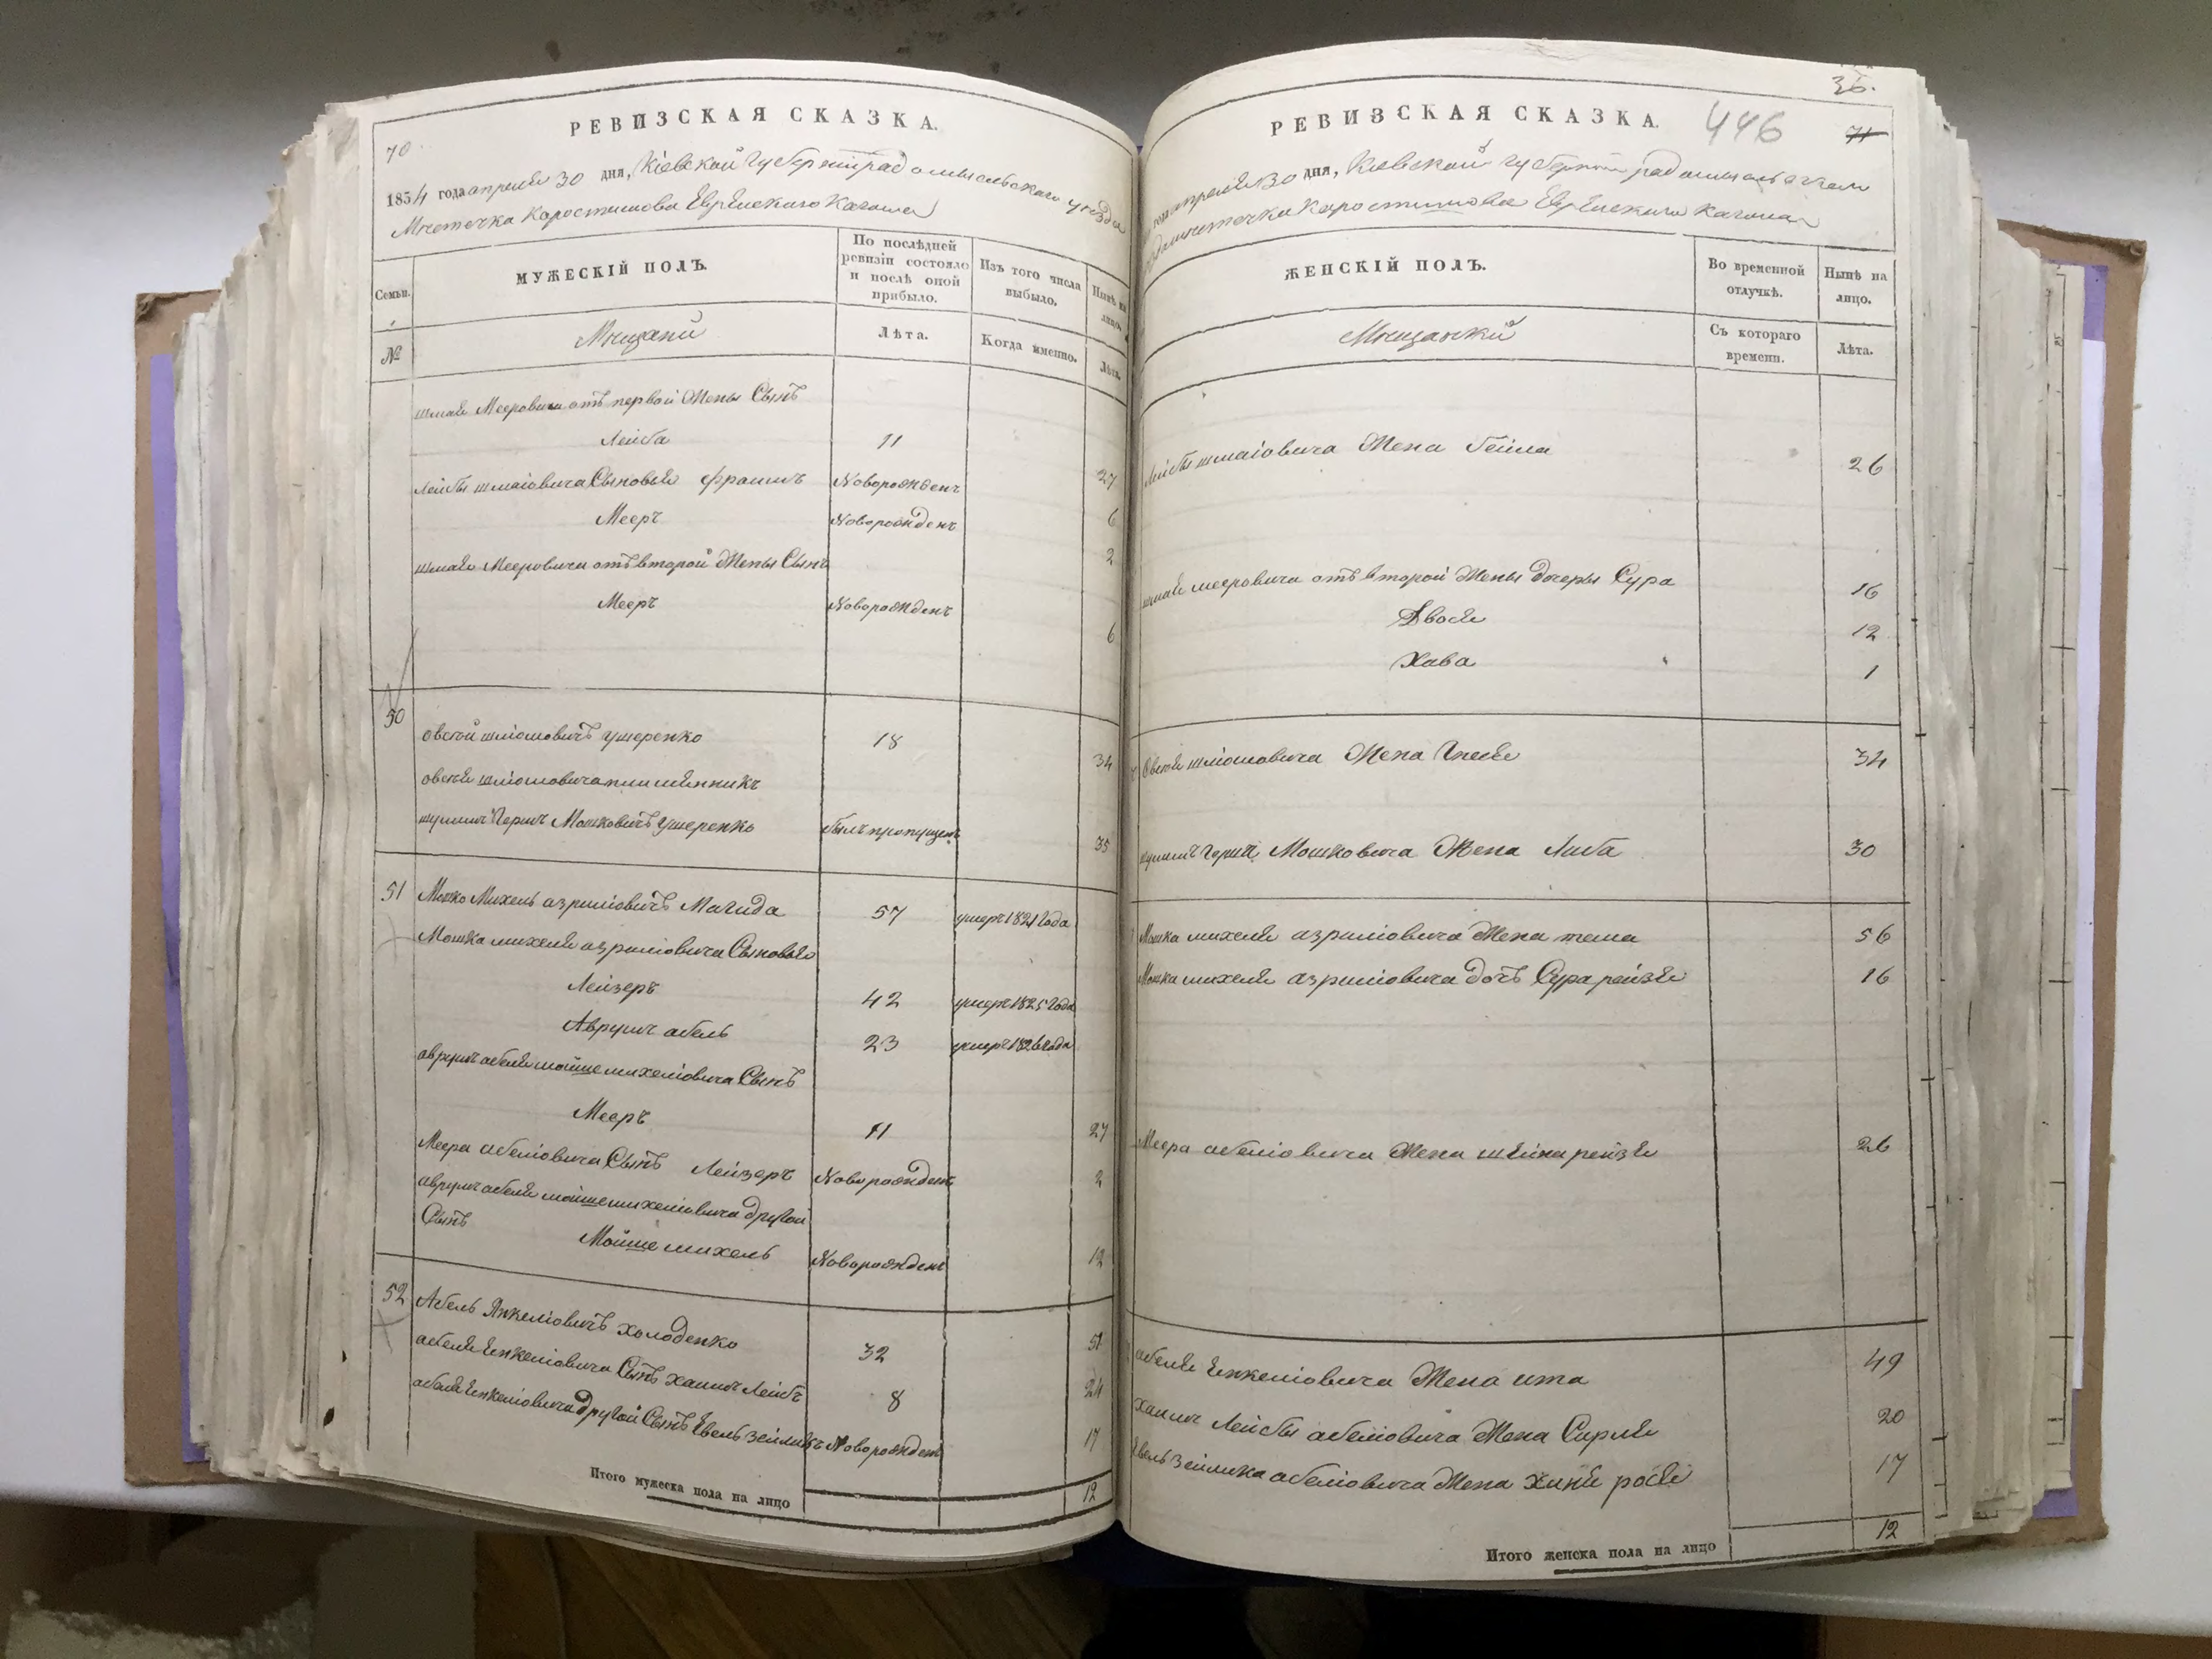 РЕВИЗСКАЯ СКАЗКА.
70
1834 года апреля 30 дня, Кіевской Губерніи радомысльскаго уезда
Местечка Коростишова Еврейскаго Кагала
Семьи.
МУЖЕСКІЙ ПОЛЪ.
По послѣдней ревизіи состояло и послѣ оной прибыло.
Изъ того числа выбыло.
Нынѣ на лицо.
№
Мещани
Лѣта.
Когда именно.
Лѣта.
шмаи Мееровича отъ первой Жены Сынъ
Лейба 11 27
Лейбы шмаіовича Сыновья фроимъ Новорожденъ 6
Мееръ Новорожденъ 2
шмаи Мееровича отъ второй Жены Сынъ
Мееръ Новорожденъ 6
50
овсей шліомовичъ ушеренко 18 34
овсея шліомовича племянникъ
шулимъ Гершъ Мошковичъ Ушеренко былъ пропущенъ 35
51 Мошко Михель азриліовичъ Магида 57 умеръ 1821 Года
Мошка михеля азриліовича Сыновья
Лейзеръ 42 умеръ 1825 Года
Аврумъ абель 23 умеръ 1826 Года
аврумъ абеля мойше михеліовича Сынъ
Мееръ 11 27
Меера абеліовича Сынъ Лейзеръ Новорожденъ 2
аврумъ абеля мойше михеліовича другой
Сынъ Мойше михель Новорожденъ 12
52 Абель Янкеліовичъ холоденко 32 51
абеля Енкеліовича Сынъ хаимъ Лейбъ 8 24
абеля Енкеліовича другой Сынъ Евель зейликъ Новорожденъ 17
Итого мужеска пола на лицо 12
36.
РЕВИЗСКАЯ СКАЗКА.
446
71
апреля 30 дня, Кіевской Губерніи
местечка Коростишова Еврейскаго Кагала
ЖЕНСКІЙ ПОЛЪ.
Во временной отлучкѣ.
Нынѣ на лицо.
Мещанки
Съ котораго времени.
Лѣта.
Лейбы шмаіовича Жена бейла 26
шмаи мееровича отъ второй Жены дочеры Сура 16
Двося 12
Хава 1
Овсея шліомовича Жена Гнеся 34
шулимъ Герша Мошковича Жена Либа 30
Мошка михеля азриліовича Жена тема 56
Мошка михеля азриліовича дочь Сура рейзя 16
Меера абеліовича Жена шейна рейзя 26
абеля Енкеліовича Жена ита 49
хаимъ Лейбы абеліовича Жена Сирля 20
Евель зейлика абеліовича Жена хиня рося 17
Итого женска пола на лицо 12